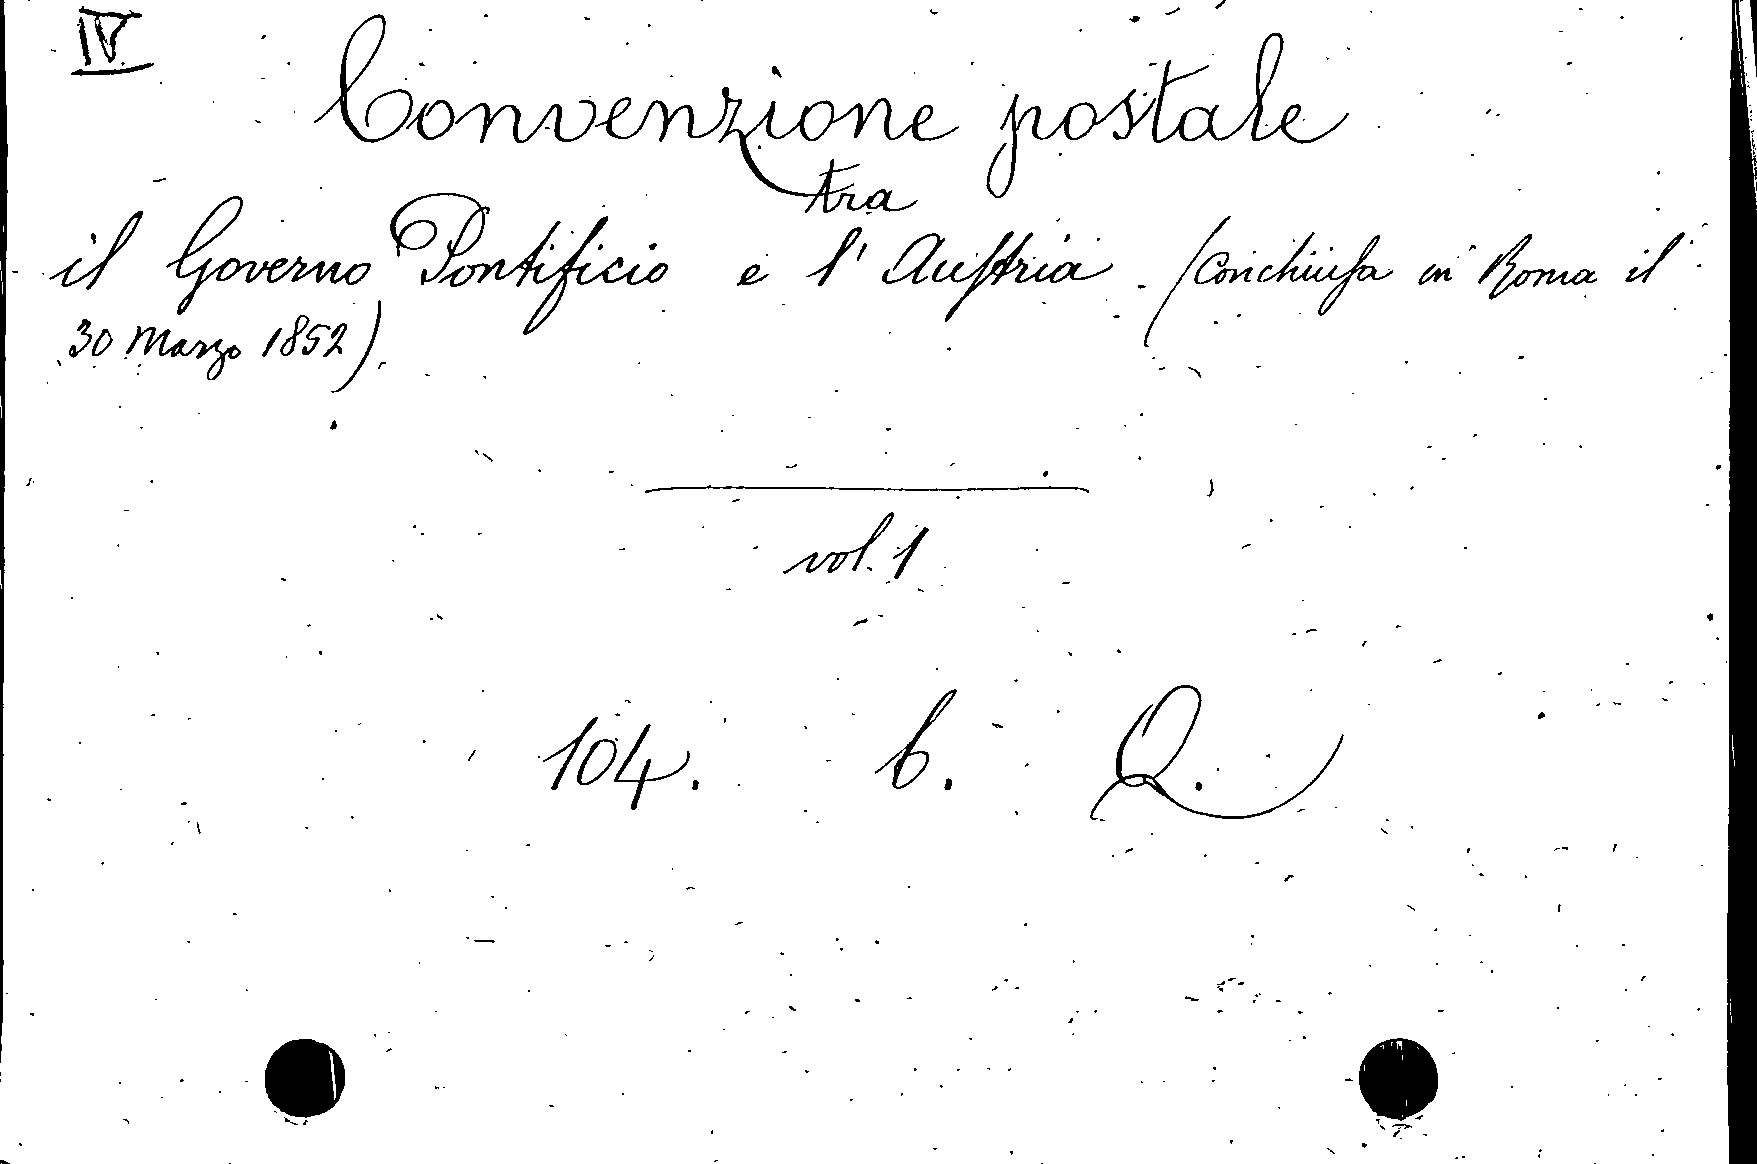 IV.
Convenzione postale
tra
il Governo Pontificio e l' Austria. (Conchiusa in Roma il
30 Marzo 1852).
vol. 1
104. b. Q.